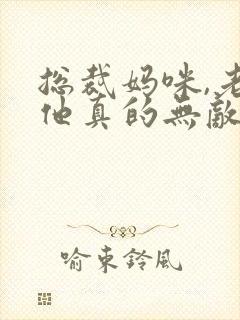 总裁妈咪,老
他真的無敵
喻東鈴風